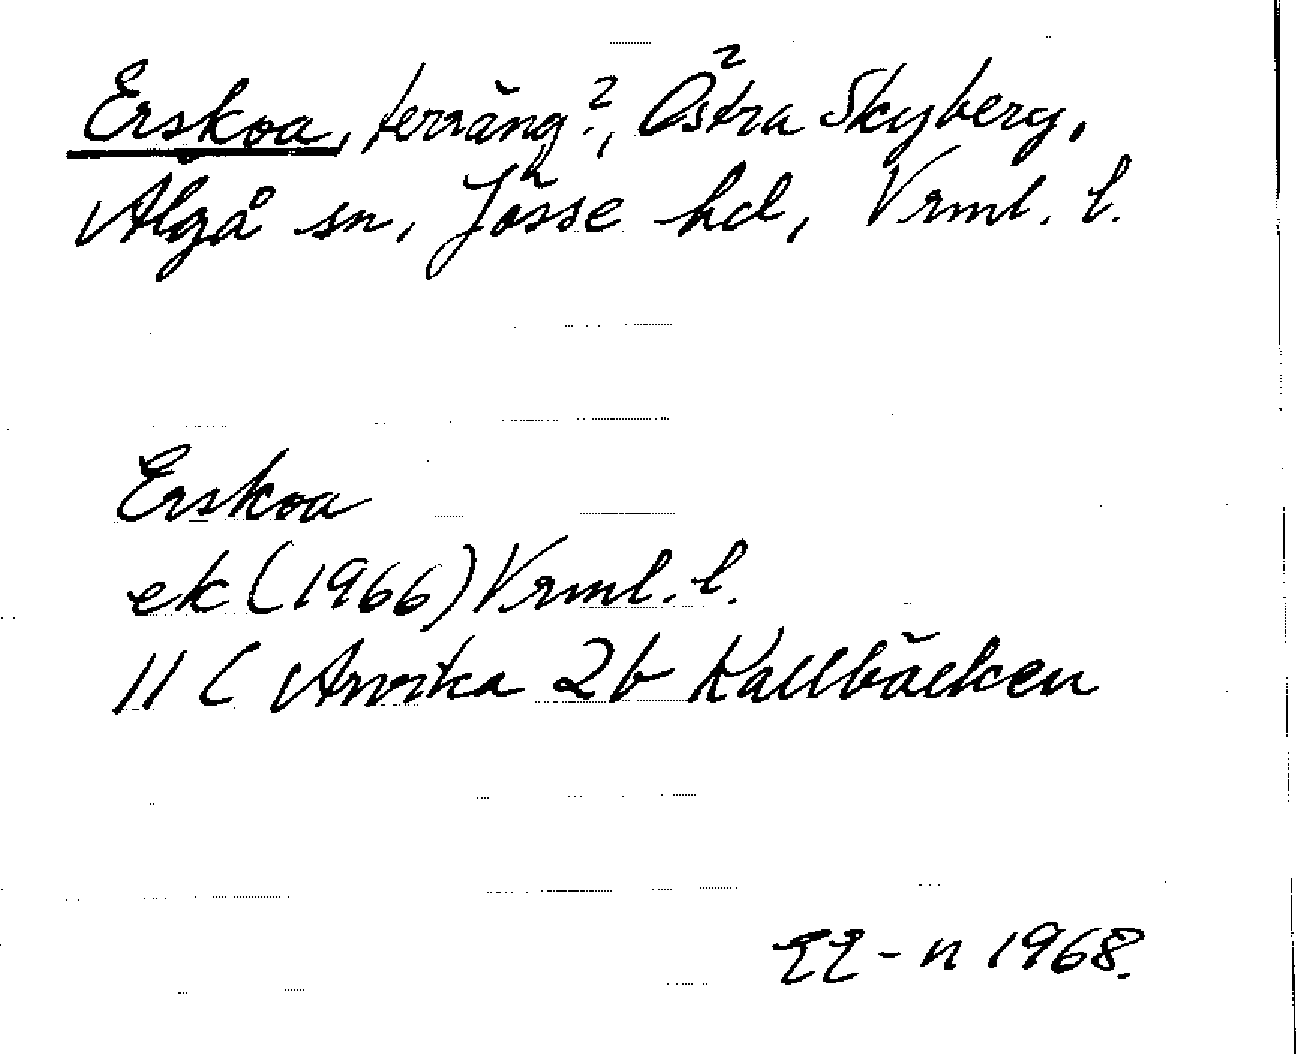 Erskoa, terräng?, Östra Skyberg,
Älgå sn, Jösse hd, Vrml. l.
Erskoa
ek (1966) Vrml. l.
11 C Arvika 2b Kallbäcken
-n 1968.